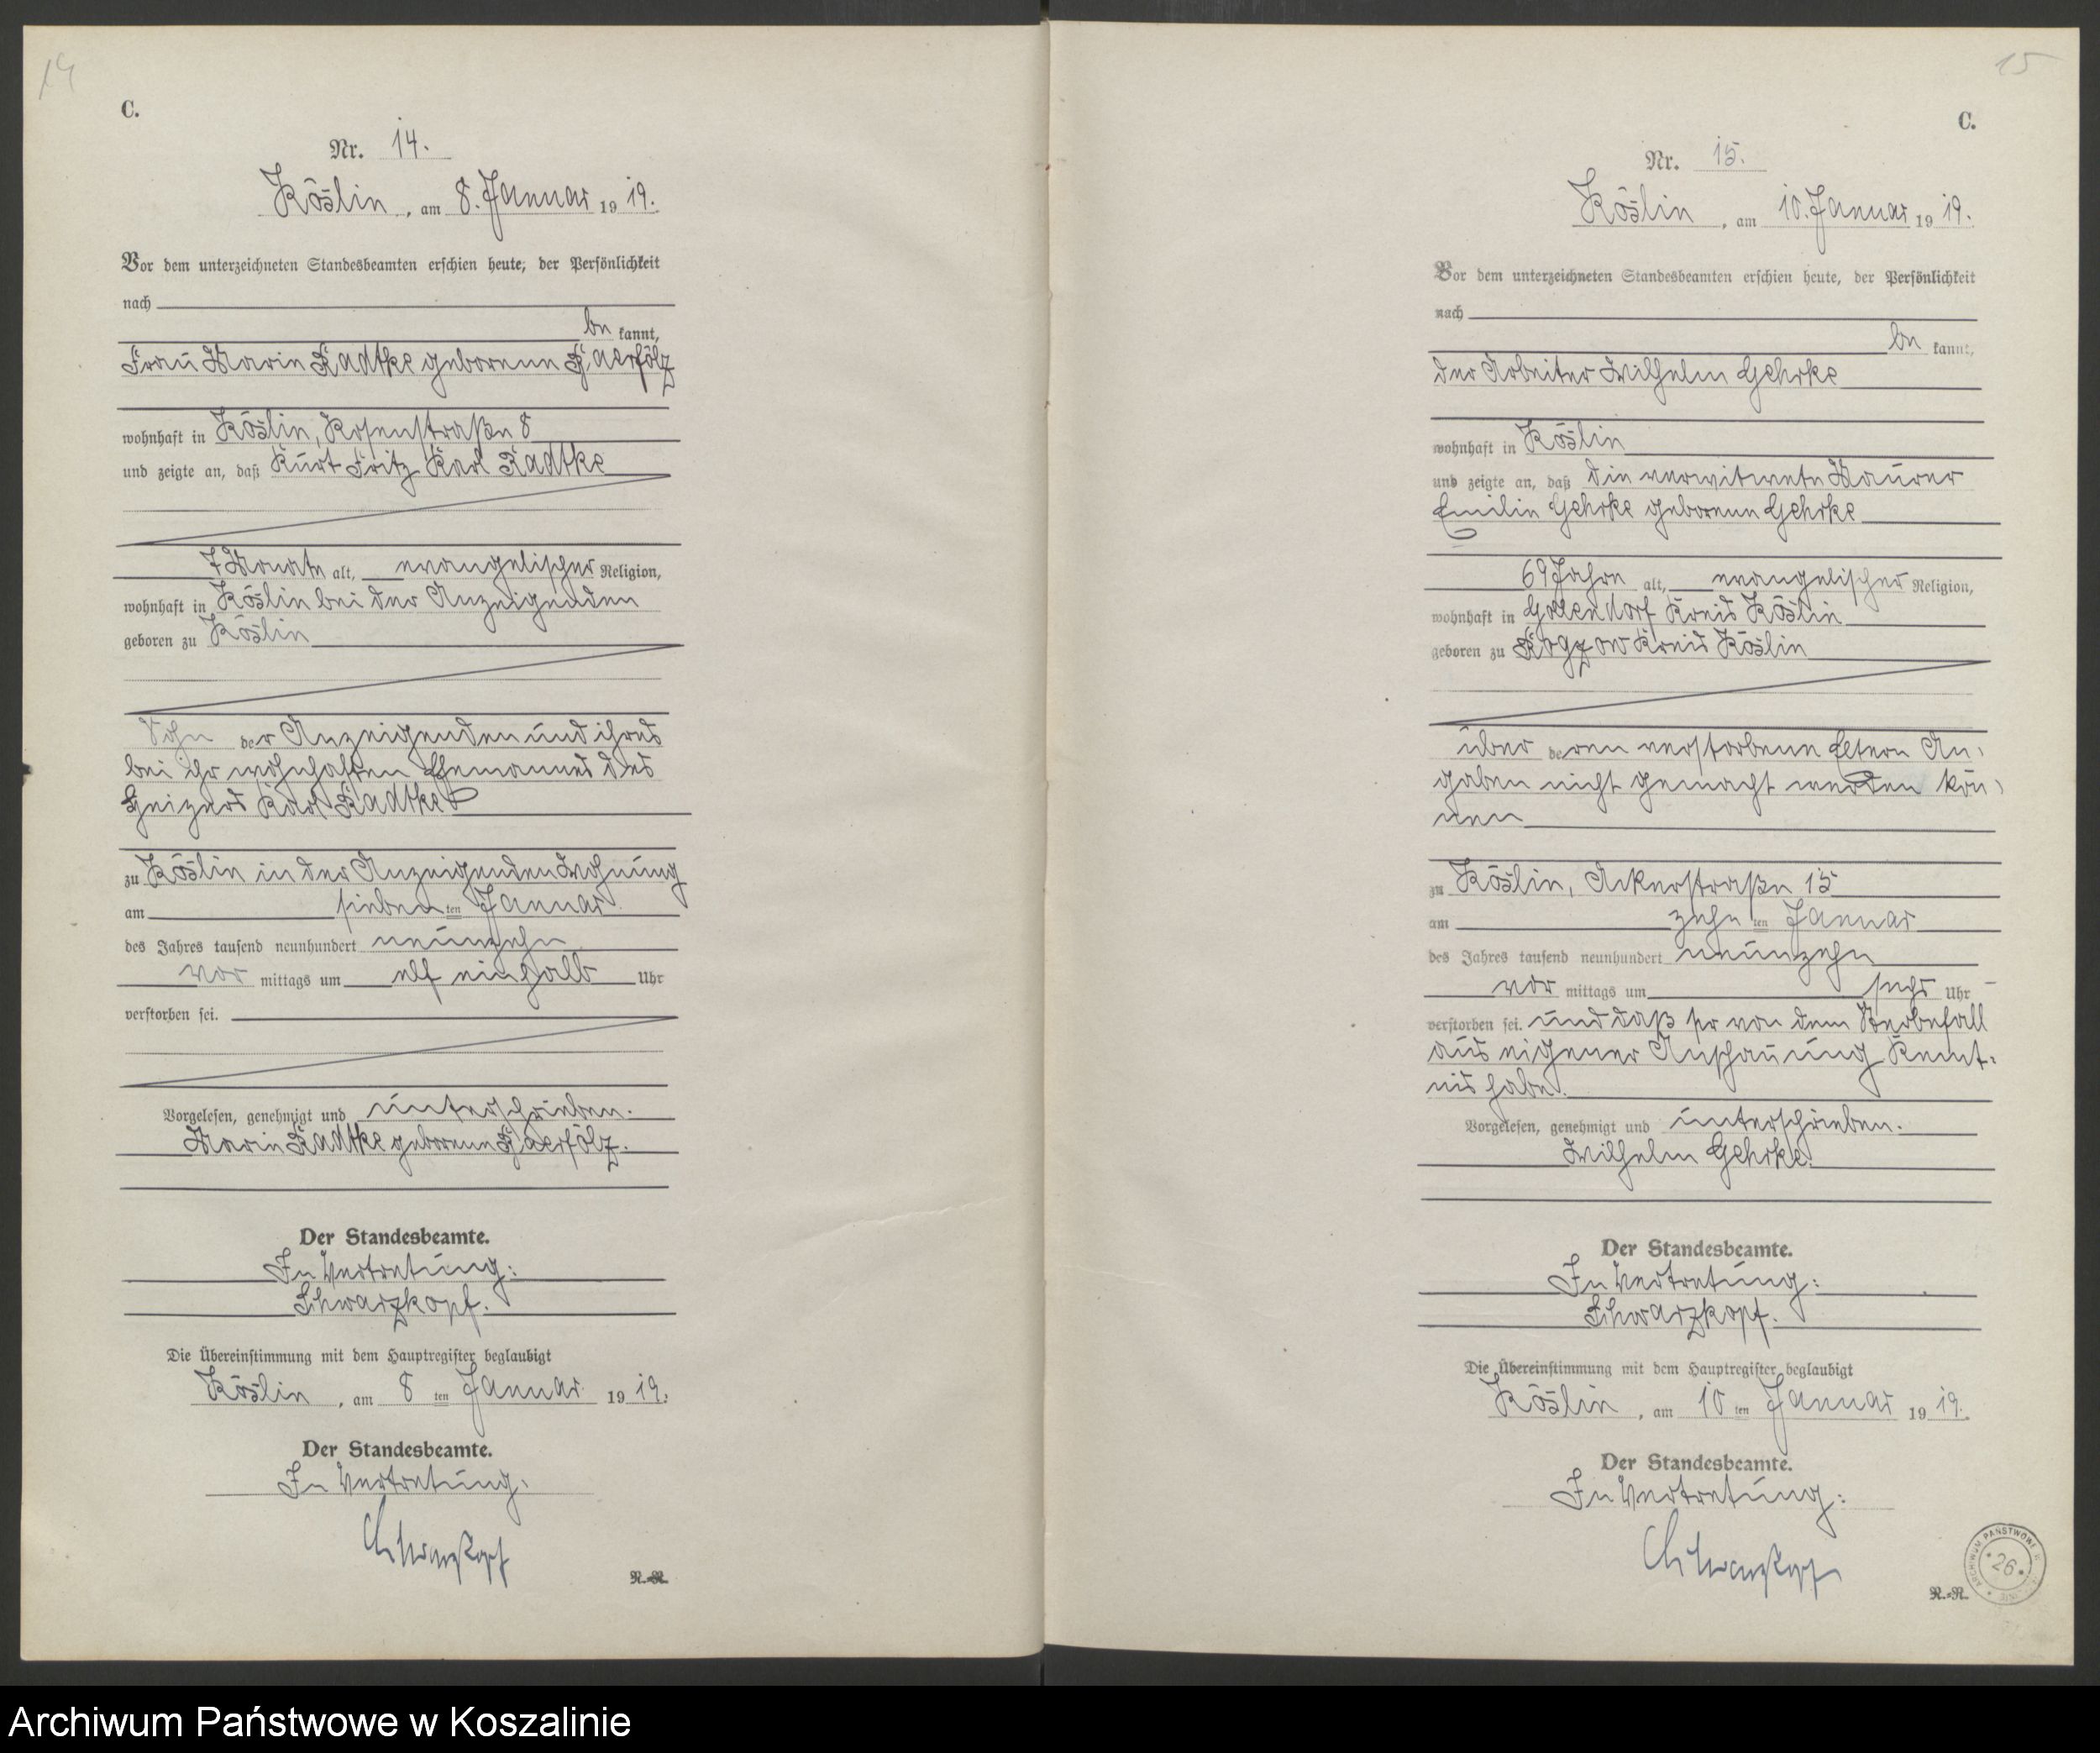 14
C.
Nr. 14.
Köslin, am 8. Januar 1919.
Vor dem unterzeichneten Standesbeamten erschien heute, der Persönlichkeit
nach
be kannt,
Frau Marie Radtke geborene
wohnhaft in Köslin, Rosenstraße 8
und zeigte an, daß Kurt Fritz Karl Radtke
7 Monate alt, evangelischer Religion,
wohnhaft in Köslin bei der Anzeigenden
geboren zu Köslin
Sohn der Anzeigenden und ihres
bei ihr wohnhaften Ehemannes des
Heizers Karl Radtke
zu Köslin in der Anzeigenden Wohnung
am sieben ten Januar
des Jahres tausend neunhundert neunzehn
vor mittags um elf einhalb Uhr
verstorben sei.
Vorgelesen, genehmigt und unterschrieben.
Marie Radtke geborene
Der Standesbeamte.
In Vertretung:
Schwarzkopf.
Die Übereinstimmung mit dem Hauptregister beglaubigt
Köslin, am 8 ten Januar 1919.
Der Standesbeamte.
In Vertretung.
Schwarzkopf
R.-R.
15
C.
Nr. 15.
Köslin, am 10. Januar 1919.
Vor dem unterzeichneten Standesbeamten erschien heute, der Persönlichkeit
nach
be kannt,
der Arbeiter Wilhelm Gehrke
wohnhaft in Köslin
und zeigte an, daß die verwitwete Maurer
Emilie Gehrke geborene Gehrke
69 Jahre alt, evangelischer Religion,
wohnhaft in Kreis Köslin
geboren zu Rogzow Kreis Köslin
über deren verstorbene Eltern An-
gaben nicht gemacht werden kön-
nen
zu Köslin, Ackerstraße 15
am zehn ten Januar
des Jahres tausend neunhundert neunzehn
vor mittags um sechs Uhr
verstorben sei. und daß er von dem Sterbefall
aus eigener Anschauung Kennt-
nis habe.
Vorgelesen, genehmigt und unterschrieben.
Wilhelm Gehrke.
Der Standesbeamte.
In Vertretung:
Schwarzkopf.
Die Übereinstimmung mit dem Hauptregister beglaubigt
Köslin, am 10 ten Januar 1919.
Der Standesbeamte.
In Vertretung:
Schwarzkopf
R.-R.
ARCHIWUM PAŃSTWOWE
26
Archiwum Państwowe w Koszalinie